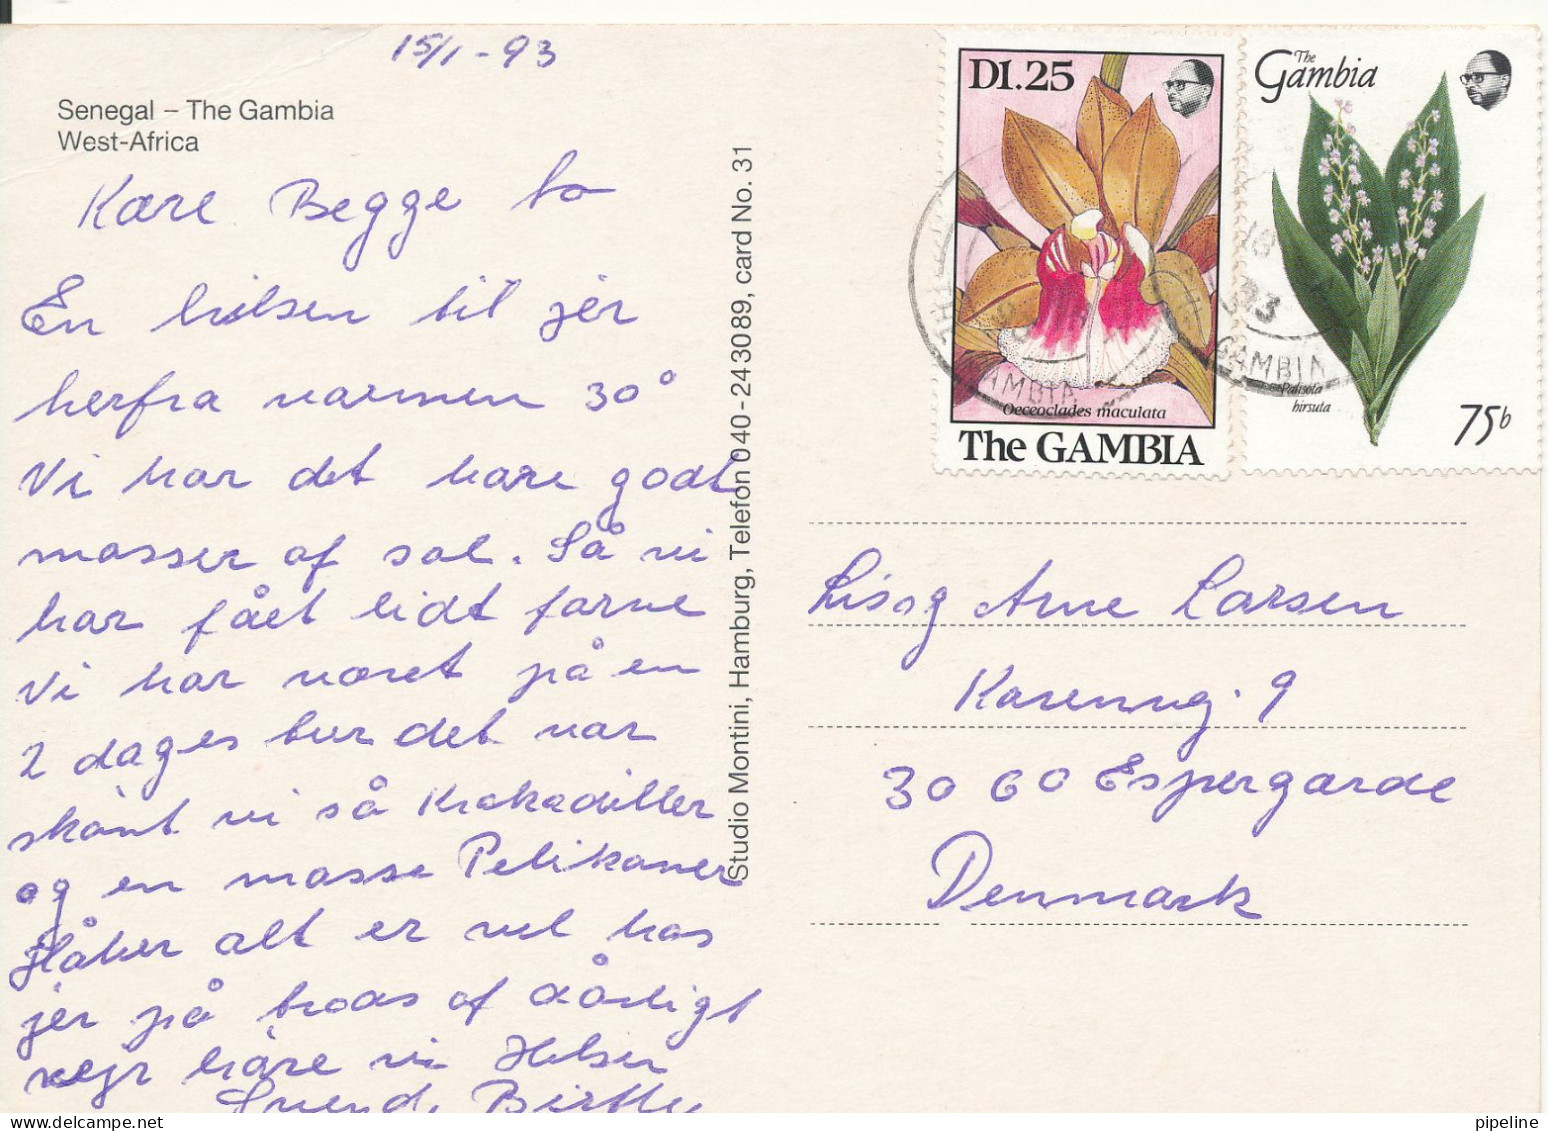 15/1-93
Senegal – The Gambia
West-Africa
Kære Begge to
En hilsen til jer
herfra varmen 30°
Vi har det bare godt
masser af sol. Så vi
har fået lidt farve
Vi har været på en
2 dages tur det var
skønt vi så Krokodiller
og en masse Pelikaner
Håber alt er vel hos
jer på trods af dårligt
vejr høre vi Hilsen
Svend, Birthe
Studio Montini, Hamburg, Telefon 040-243089, card No. 31
D1.25
Oeceoclades maculata
The GAMBIA
The Gambia
Palisota
hirsuta
75b
GAMBIA
GAMBIA
Lis og Arne Larsen
Karenvej. 9
3060 Espergærde
Denmark
pipeline